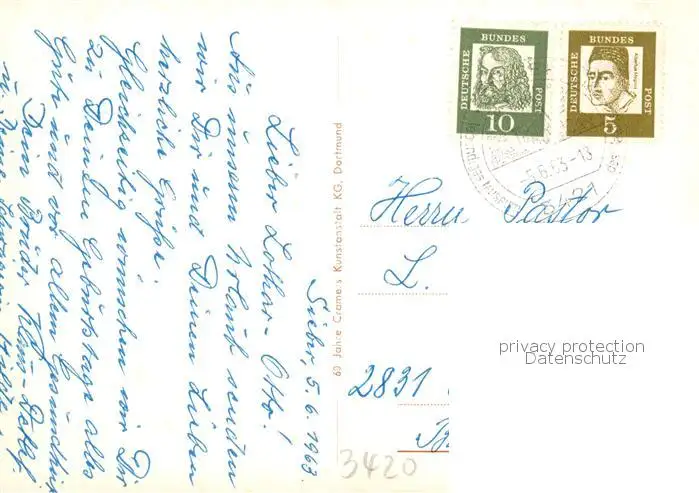 Sieber, 5.6.1963
Lieber Lothar-Otto!
Aus unserm Urlaub senden
wir Dir und Deinen Lieben
herzliche Grüße.
Gleichzeitig wünschen wir Dir
zu Deinem Geburtstage alles
Gute und vor allem Gesundheit
Dein Bruder Klaus-Detlef
60 Jahre Cramers Kunstanstalt KG, Dortmund
DEUTSCHE BUNDES POST
10
DEUTSCHE BUNDES POST
Albertus Magnus
5
-5.6.63-18
3421
Herrn Pastor
L.
2831
privacy protection
Datenschutz
3420